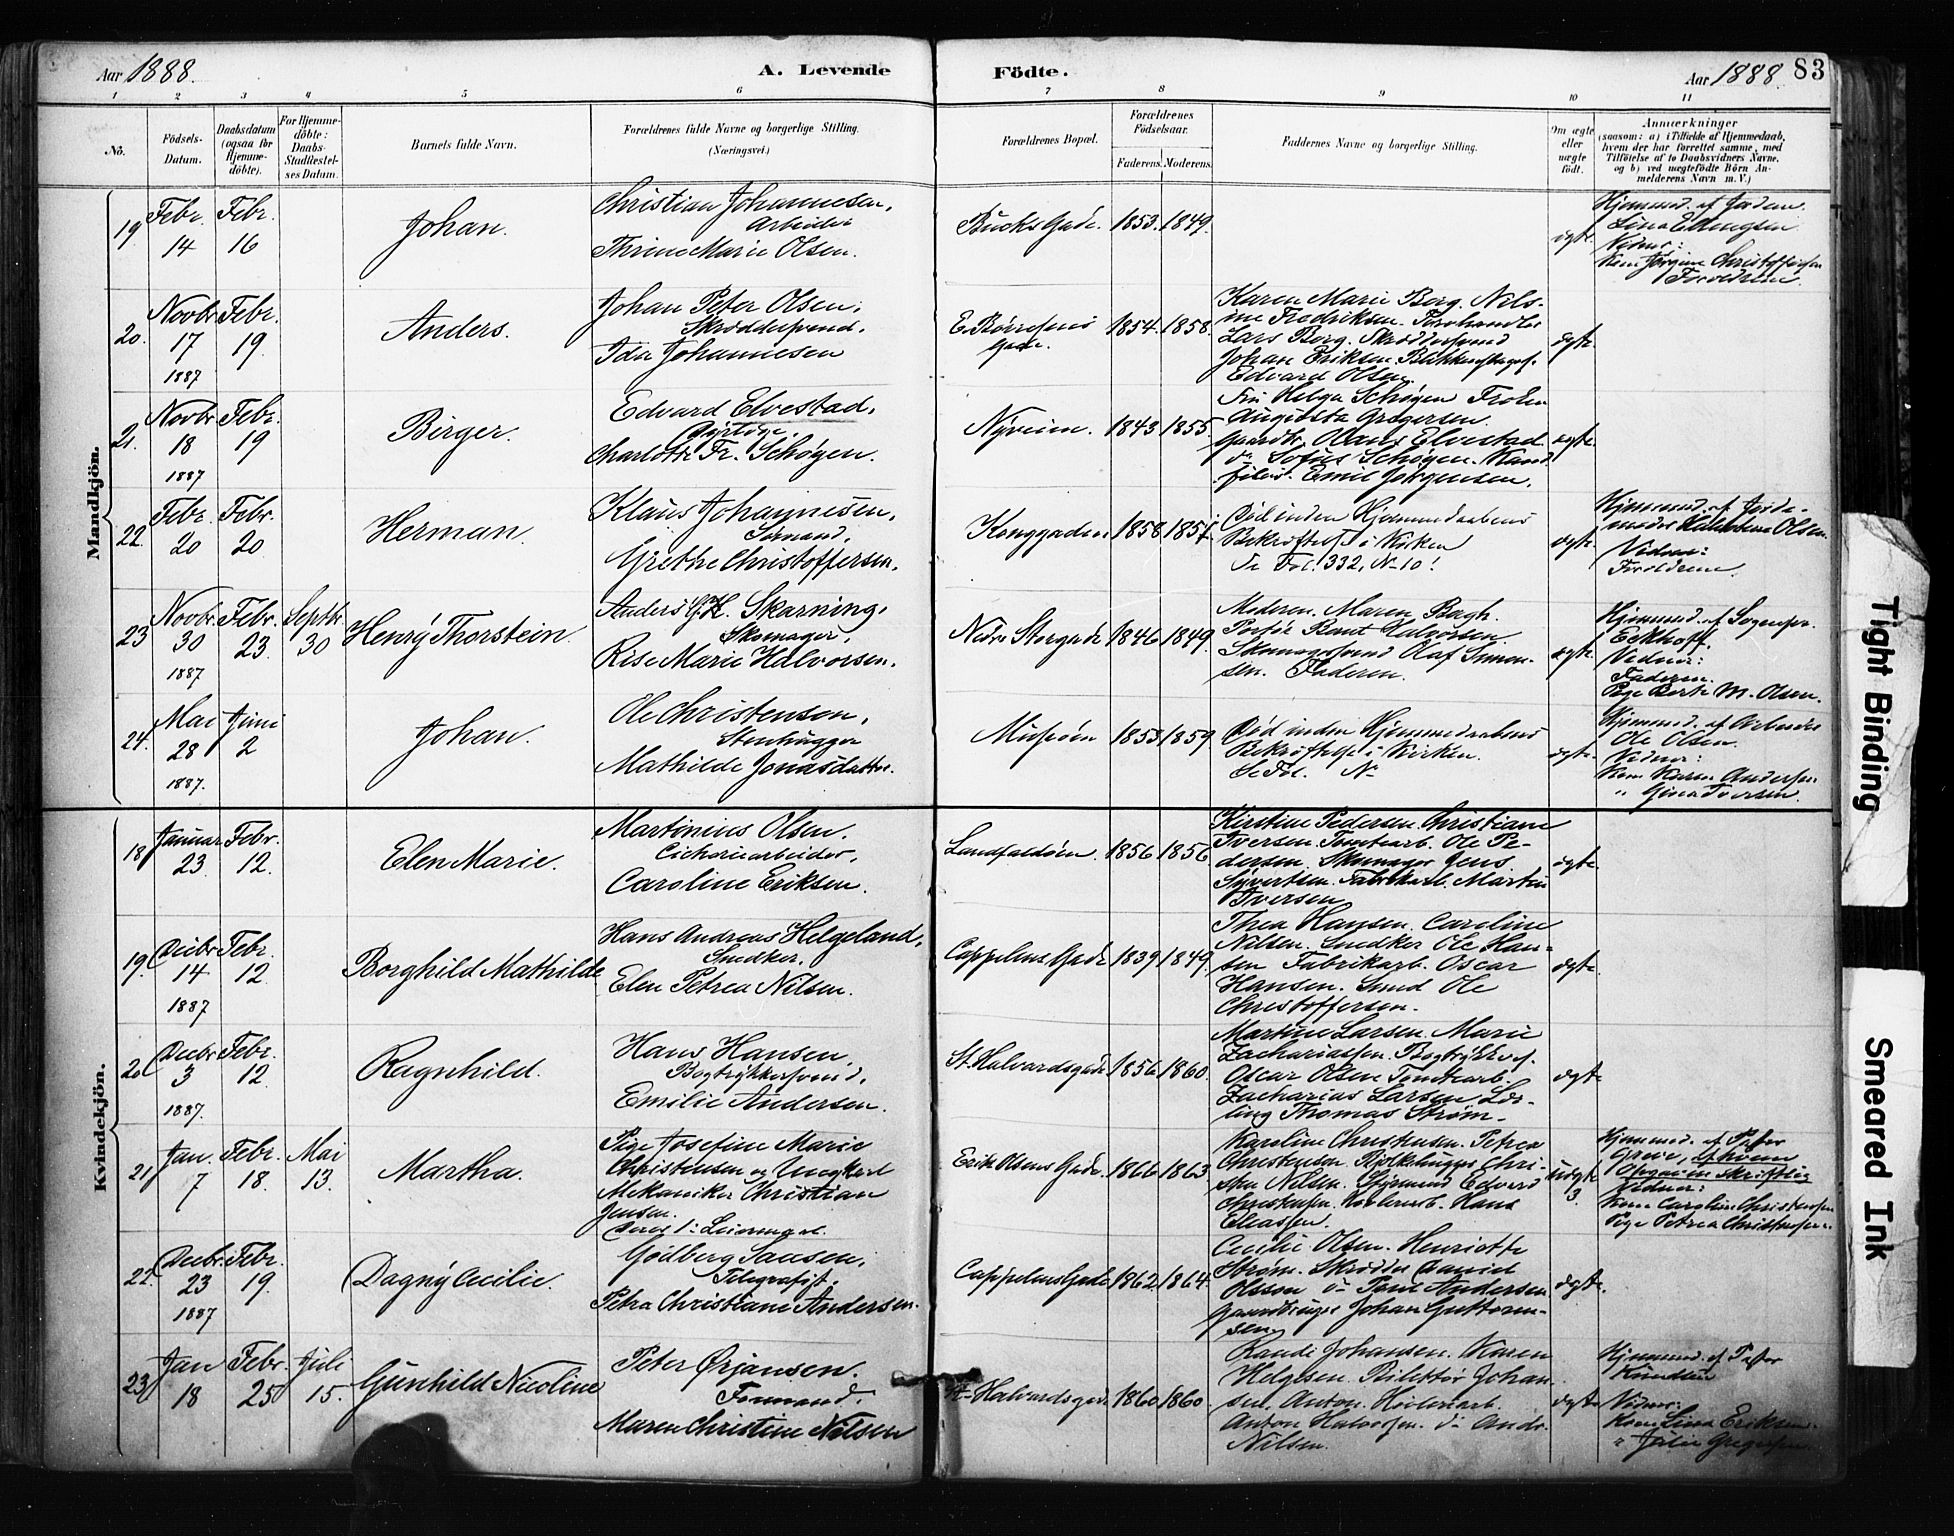 Aar 1888. A. Levende Födte. Aar 1888. 83
1 2 3 4 5 6 7 8 9 10 11
No.
Födsels-Datum.
Daabsdatum (ogsaa for Hjemme-döbte).
For Hjemme-döbte: Daabs-Stadfæstel-ses Datum.
Barnets fulde Navn.
Forældrenes fulde Navne og borgerlige Stilling.
(Næringsvei.)
Forældrenes Bopæl.
Forældrenes Födselsaar.
Faderens. Moderens.
Faddernes Navne og borgerlig Stilling.
Om ægte eller uægte födt.
Anmærkninger
(saasom: a) i Tilfælde af Hjemmedaab,
hvem der har forrettet samme, med
Tilföielse af to Daabsvidners Navne,
og b) ved uægtefödte Börn An-
melderens Navn m. V.)
Mandkjön.
19 Febr. 14 Febr. 16
Johan.
Christian Johannesen,
Arbeider
Thrine Marie Olsen.
Bucks Gade. 1853. 1849.
ægte.
Hjemmed. af Jordem.
Vidner:
Kone Jørgine Christoffersen
Forældrene
20. Novbr. 17 1887 Febr. 19.
Anders.
Johan Peter Olsen,
Skræddersvend.
Ida Johannesen
E. Børresens Gade. 1854. 1858.
Karen Marie Berg. Nils-
ine Fredriksen.
Lars Berg. Skræddersvend
Johan Eriksen.
Edvard Olsen.
ægte.
21. Novbr. 18 1887 Febr. 19
Birger.
Edvard Elvestad,
Charlotte Fr. Schøyen.
Nyveien. 1843 1855.
Fru Helga Schøyen Frøken
Augusta Gregersen.
Gaardbr. Olaus Elvestad.
do Sofus Schøyen. Kand
filos. Emil Jørgensen.
ægte.
22. Febr. 20 Febr. 20
Herman.
Klaus Johannesen,
Sømand.
Grethe Christoffersen.
Konggaden. 1858 1857.
Død inden Hjemmedaabens
Bekræftelse i Kirken
Se Fol. 332, No 10.
ægte.
Hjemmed. af Jorde-
moder Olsen.
Vidner:
Forældrene.
23 Novbr. 30 1887 Febr. 23. Septbr 30
Henry Thorstein.
Anders G. H. Skarning,
Skomager.
Rise Marie Halvorsen.
Nedre Storgade 1846 1849.
Moderen. Maren Bagh.
Halvorsen.
Skomagersvend Olaf Simon-
sen. Faderen.
ægte.
Hjemmed. af Sognepr.
Eckhoff.
Vidner:
Faderen.
Pige Berte M. Olsen.
24. Mai 28 1887. Juni 2
Johan.
Ole Christensen,
Stenhugger
Mathilde Jonasdatter.
Musøen 1855 1859
Død inden Hjemmedaabens
Bekræftelse i Kirken.
Se Fol. No
ægte.
Hjemmed. af Arbeider
Ole Olsen.
Vidner:
Kone Karen Andersen
" Gina Iversen.
Kvindekjön.
18 Januar 23 Febr. 12.
Elen Marie.
Martinius Olsen.
Cichoriearbeider,
Caroline Eriksen.
Landfaldøen. 1856 1856.
Kirstine Pedersen. Christiane
Iversen. Tomtearb. Ole Pe-
dersen. Skomager Jens
Syvertsen. Fabrikarb. Martin
Iversen.
ægte.
19. Decbr 14 1887 Febr. 12.
Borghild Mathilde
Hans Andreas Helgeland,
Snedker.
Elen Petrea Nilsen.
Cappelens Gade 1839 1849.
Thea Hansen. Caroline
Nilsen. Snedker Ole Han-
sen Fabrikarb. Oscar
Hansen. Smed Ole
Christoffersen.
ægte.
20 Decbr 3 1887. Febr. 12
Ragnhild.
Hans Hansen,
Bogtrykkersvend.
Emilie Andersen.
St. Halvardsgade 1856 1860.
Martine Larsen. Marie
Zachariassen. Bogtrykkersv.
Oscar Olsen Tomtearb.
Zacharias Larsen Lær-
ling Thomas Strøm-
ægte
21, Jan. 7 Febr. 18. Mai 13.
Martha.
Pige Josefine Marie
Christensen og Ungkarl
Mekaniker Christian
Jensen.
Deres 1ste Leiermaal.
Erik Olsens Gade. 1866 1863.
Karoline Christensen. Petrea
Christensen. Chri-
stian Nilsen. Edvard
Christensen. Høvleriarb. Hans
Eliassen.
uægte 3
Hjemmed. af Pastor
Greve, hvem
Opgaven skriftlig
Vidner:
Kone Caroline Christensen
Pige Petrea Christensen.
22. Decbr. 23 1887 Febr. 19.
Dagny Cecilie.
Godberg Jansen,
Telegrafist.
Petra Christiane Andersen.
Cappelens Gade 1862. 1864.
Cecilie Olsen. Henriette
Strøm. Skrædder Daniel
Olsson do Andersen
Johan Guttorm-
sen.
ægte.
23. Jan 18 Febr. 25 Juli 15.
Gunhild Nicoline
Peter Ørjansen.
Formand.
Maren Christine Nilsen
St. Halvardsgade. 1860 1860.
Randi Johansen. Karen
Helgesen. Billettør Johan-
sen. Anton. Høvleriarb.
Anton Halvorsen. do Andr.
Nilsen.
ægte
Hjemmed. af Pastor
Knudsen
Vidner:
Kone Lina Eriksen.
" Julie Gregersen.
Tight Binding
Smeared Ink